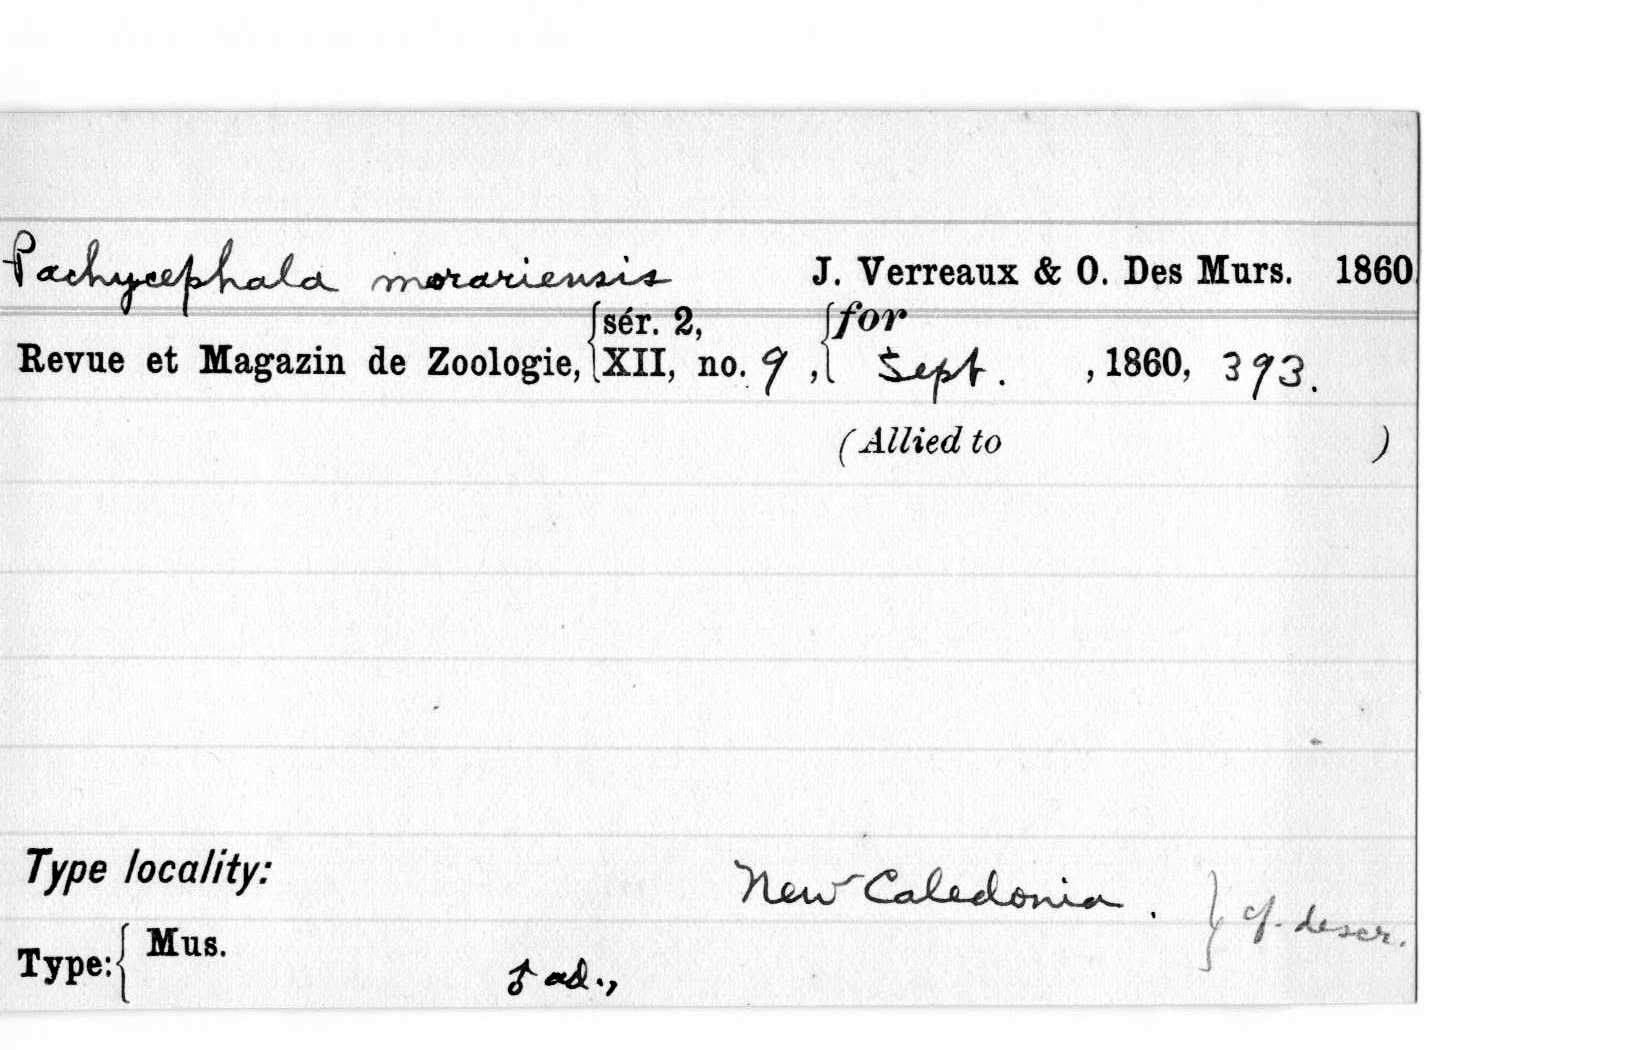 Pachycephala morariensis J. Verreaux & O. Des Murs. 1860.
sér. 2, for
Revue et Magazin de Zoologie, XII, no. 9, Sept., 1860, 393.
(Allied to )
Type locality: New Caledonia. } cf. descr.
Type: { Mus. ♂ ad.,